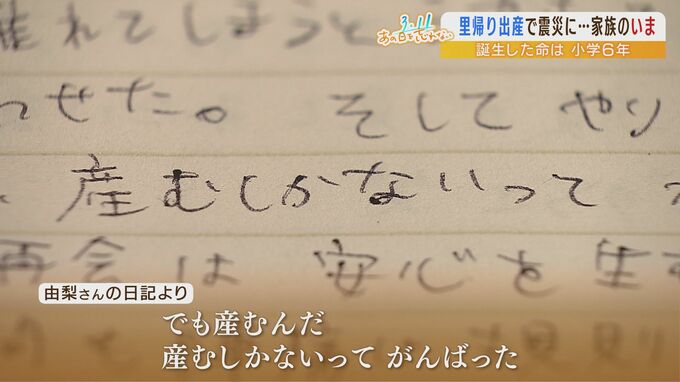 3.11
あの日を忘れない
里帰り出産で震災に…家族のいま
誕生した命は 小学6年
離れてしまうと
わせた。 そして やり
産むしかないって
再会は 安心を生
由梨さんの日記より
でも産むんだ
産むしかないって がんばった